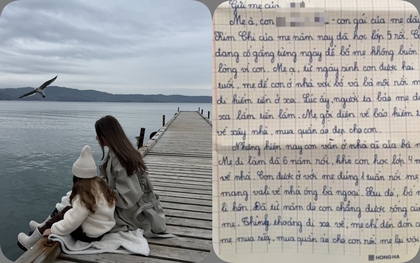 Gửi mẹ của
Mẹ ạ, con - con gái của mẹ đây.
Kim Chi của mẹ năm nay đã học lớp 5 rồi. Con
đang cố gắng từng ngày để bố mẹ không buồn
lòng vì con. Mẹ ạ, từ ngày sinh con được hai
tuổi, mẹ để con ở nhà với bố và bà nội nên mẹ
đi kiếm tiền ở xa. Lúc ấy người ta bảo mẹ đi
xa lắm lắm. Mẹ gọi điện về bảo kiếm
về xây nhà, mua quần áo đẹp cho con.
Nhưng hiện nay con vẫn ở nhà cũ của bà
Mẹ đi làm đã 6 năm rồi, khi con học lớp
về nhà. Con được ở với mẹ đúng 1 tuần rồi mẹ
mang vali về nhà ông bà ngoại. Sau đó, bố
li hôn. Đã từ năm đó con chẳng được sống
mẹ. Thỉnh thoảng đi xa về, mẹ chỉ đến đón
mẹ mua giày, mua quần áo cho con rồi mẹ lại
HONG HA